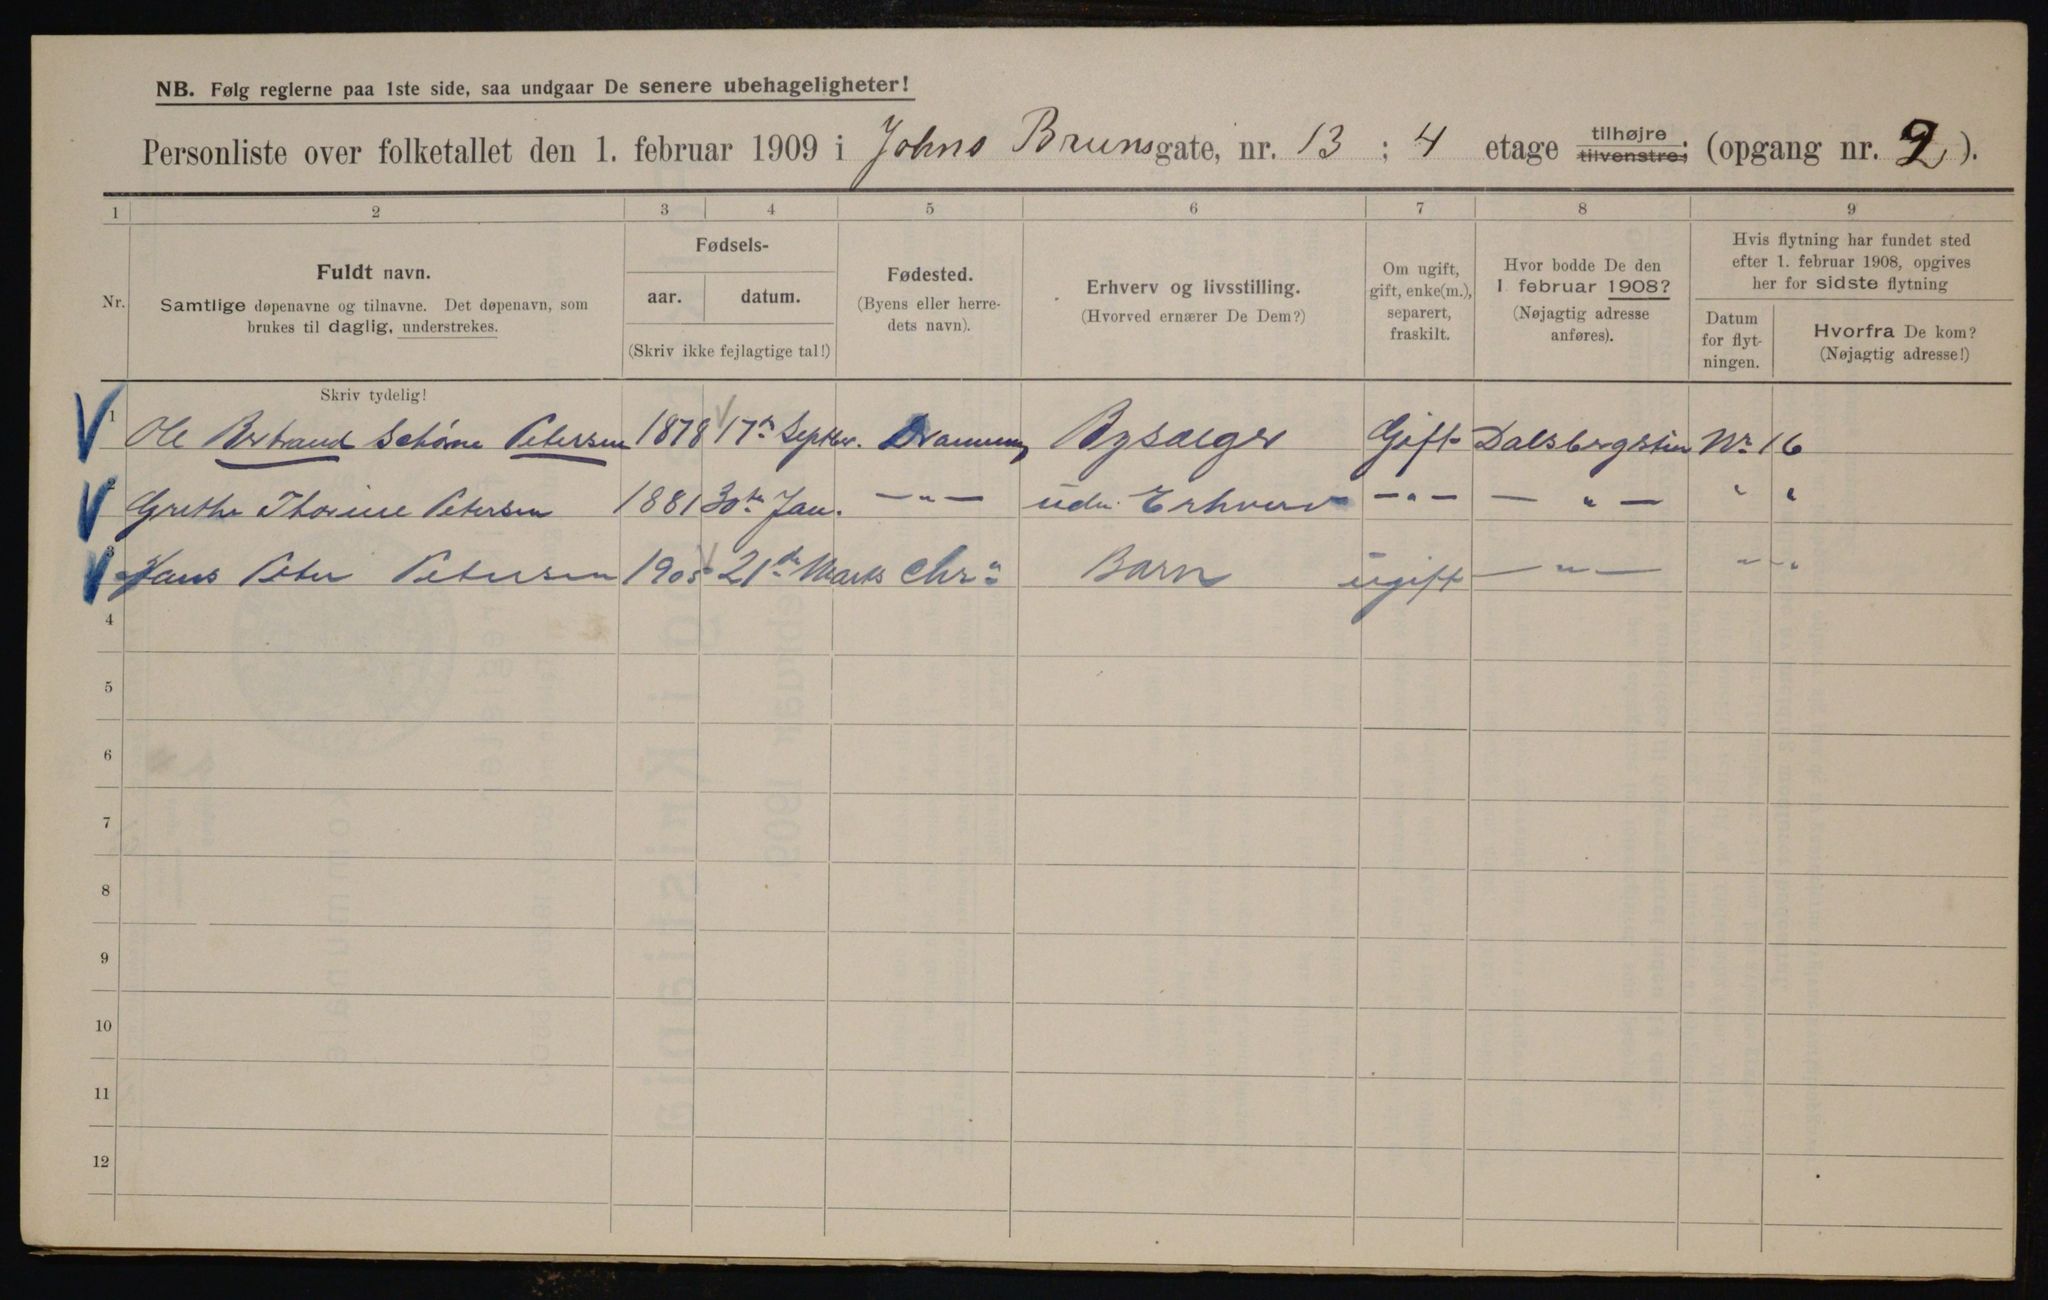 NB. Følg reglerne paa 1ste side, saa undgaar De senere ubehageligheter!
Personliste over folketallet den 1. februar 1909 i Johns Brunsgate, nr. 13 ; 4 etage tilhøjre tilvenstre; (opgang nr. 2 ).
1 2 3 4 5 6 7 8 9
Nr.
Fuldt navn.
Samtlige døpenavne og tilnavne. Det døpenavn, som
brukes til daglig, understrekes.
Fødsels-
aar. datum.
(Skriv ikke fejlagtige tal!)
Fødested.
(Byens eller herre-
dets navn).
Erhverv og livsstilling.
(Hvorved ernærer De Dem?)
Om ugift,
gift, enke(m.),
separert,
fraskilt.
Hvor bodde De den
1. februar 1908?
(Nøjagtig adresse
anføres).
Hvis flytning har fundet sted
efter 1. februar 1908, opgives
her for sidste flytning
Datum
for flyt-
ningen.
Hvorfra De kom?
(Nøjagtig adresse!)
Skriv tydelig!
1 Ole Bertrand Schørne Petersen 1878 17de Septbr. Drammen Bysælger Gift Dalsbergstien Nr 16
2 Grethe Thorine Petersen 1881 30te Jan. — " — uden Erhverv — " — — " — " "
3 Hans Peter Petersen 1905 21de Marts Chr a Barn ugift — " — " "
4
5
6
7
8
9
10
11
12